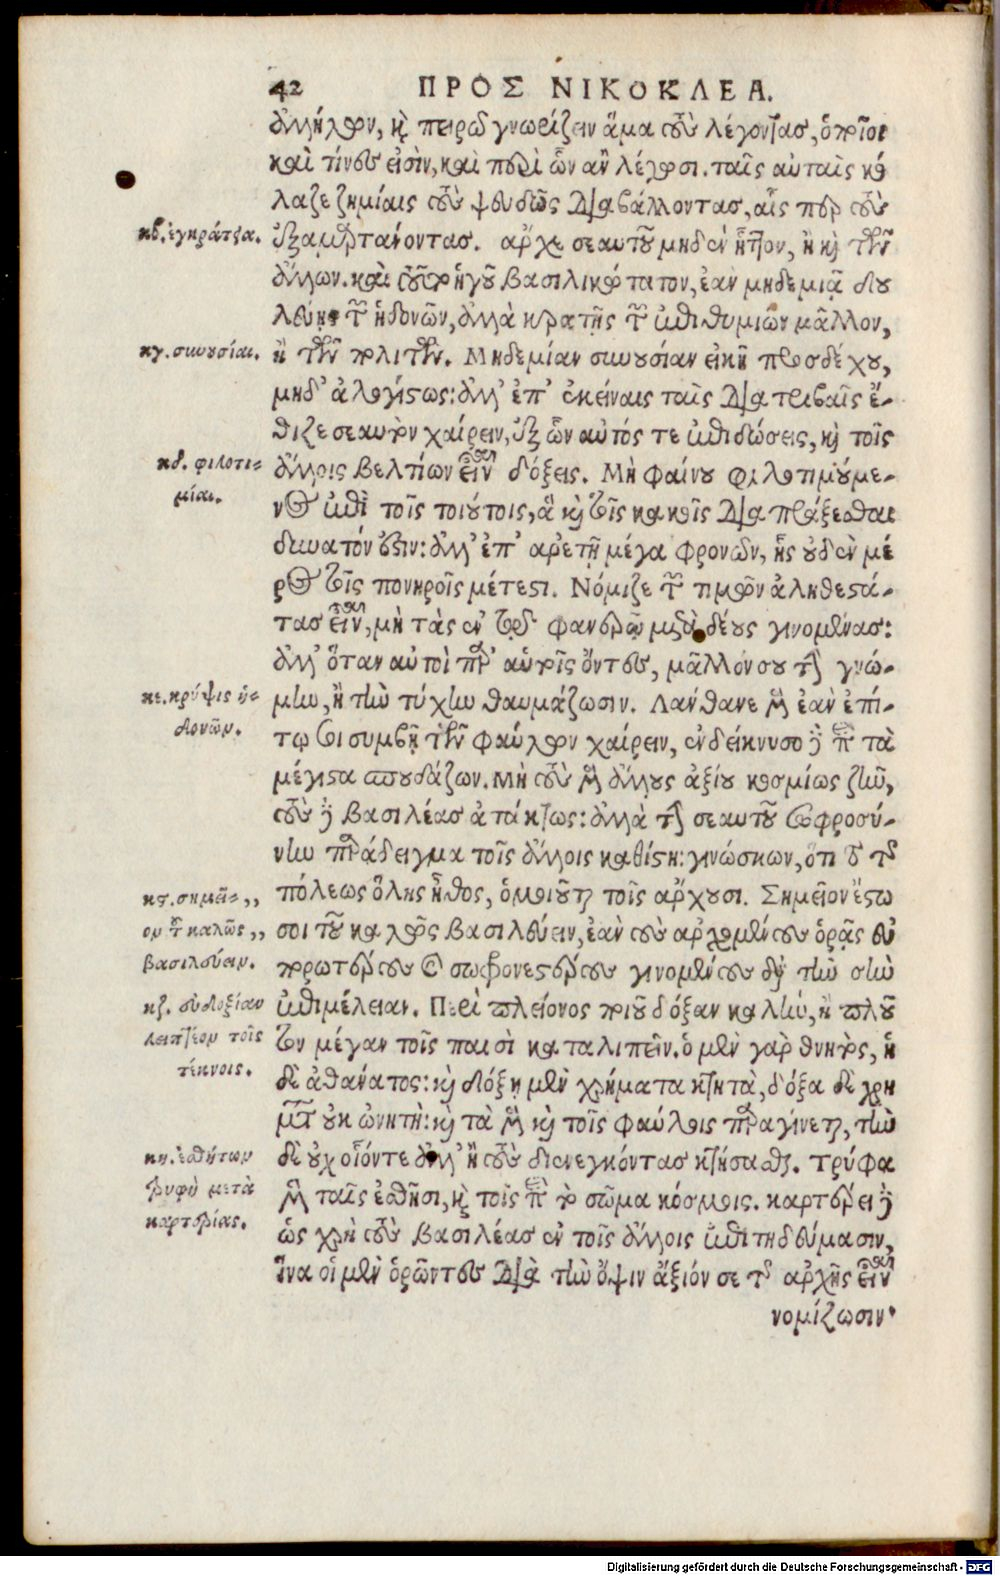 42 ΠΡΟΣ ΝΙΚΟΚΛΕΑ.
ἀλλήλων, καὶ πειρῶ γνωρίζειν ἅμα τοὺς λέγοντας, ὁποῖοί
καὶ τίνες εἰσὶν, καὶ περὶ ὧν ἂν λέγωσι. ταῖς αὐταῖς κό
λαζε ζημίαις τοὺς ψευδῶς διαβάλλοντας, αἷς περ τοὺς
κβ. ἐγκράτεια.
ἐξαμαρτάνοντας. ἄρχε σεαυτοῦ μηδὲν ἧττον, ἢ καὶ τῶν
ἄλλων. καὶ τοῦθ' ἡγοῦ βασιλικώτατον, ἐὰν μηδεμιᾷ δου
λεύῃς τῶν ἡδονῶν, ἀλλὰ κρατῇς τῶν ἐπιθυμιῶν μᾶλλον,
κγ. συνουσίαι.
ἢ τῶν πολιτῶν. Μηδεμίαν συνουσίαν εἰκῆ προσδέχου,
μηδ' ἀλογίστως: ἀλλ' ἐπ' ἐκείναις ταῖς διατριβαῖς ἔ-
θιζε σεαυτὸν χαίρειν, ἐξ ὧν αὐτός τε ἐπιδώσεις, καὶ τοῖς
κδ. φιλοτι-
μίαι.
ἄλλοις βελτίων εἶναι δόξεις. Μὴ φαίνου φιλοτιμούμε-
νος ἐπὶ τοῖς τοιούτοις, ἃ καὶ τοῖς κακοῖς διαπράξεσθαι
δυνατόν ἐστιν: ἀλλ' ἐπ' ἀρετῇ μέγα φρονῶν, ἧς οὐδὲν μέ
ρος τοῖς πονηροῖς μέτεστι. Νόμιζε τῶν τιμῶν ἀληθεστά-
τας εἶναι, μὴ τὰς ἐν τῷ φανερῷ μετὰ δέους γινομένας:
ἀλλ' ὅταν αὐτοὶ παρ' αὑτοῖς ὄντες, μᾶλλόν σου τὴν γνώ-
κε. κρύψις ἡ-
δονῶν.
μην, ἢ τὴν τύχην θαυμάζωσιν. Λάνθανε μὲν ἐὰν ἐπί-
τῳ σοι συμβῇ τῶν φαύλων χαίρειν, ἐνδείκνυσο δὲ περὶ τὰ
μέγιστα σπουδάζων. Μὴ τοὺς μὲν ἄλλους ἀξίου κοσμίως ζῆν,
τοὺς δὲ βασιλέας ἀτάκτως: ἀλλὰ τὴν σεαυτοῦ σωφροσύ-
νην παράδειγμα τοῖς ἄλλοις καθίστη: γινώσκων, ὅτι τὸ τῆς
κϛ. σημεῖ-,,
ον τοῦ καλῶς,,
βασιλεύειν.
πόλεως ὅλης ἦθος, ὁμοιοῦται τοῖς ἄρχουσι. Σημεῖον ἔστω
σοι τοῦ καλῶς βασιλεύειν, ἐὰν τοὺς ἀρχομένους ὁρᾷς εὐ
πορωτέρους καὶ σωφρονεστέρους γινομένους διὰ τὴν σὴν
κζ. εὐδοξίαν
λειπτέον τοῖς
τέκνοις.
ἐπιμέλειαν. Περὶ πλείονος ποιοῦ δόξαν καλὴν, ἢ πλοῦ
τον μέγαν τοῖς παισὶ καταλιπεῖν. ὁ μὲν γὰρ θνητὸς, ἡ
δὲ ἀθάνατος: καὶ δόξῃ μὲν χρήματα κτητὰ, δόξα δὲ χρη
μάτων οὐκ ὠνητή: καὶ τὰ μὲν καὶ τοῖς φαύλοις παραγίνεται, τὴν
κη. ἐσθήτων
τρυφὴ μετὰ
καρτερίας.
δὲ οὐχ οἷόντε ἀλλ' ἢ τοὺς διενεγκόντας κτήσασθαι. τρύφα
μὲν ταῖς ἐσθῆσι, καὶ τοῖς περὶ τὸ σῶμα κόσμοις. καρτέρει δὲ
ὡς χρὴ τοὺς βασιλέας ἐν τοῖς ἄλλοις ἐπιτηδεύμασιν,
ἵνα οἱ μὲν ὁρῶντες διὰ τὴν ὄψιν ἄξιόν σε τῆς ἀρχῆς εἶναι
νομίζωσιν·
Digitalisierung gefördert durch die Deutsche Forschungsgemeinschaft - DFG